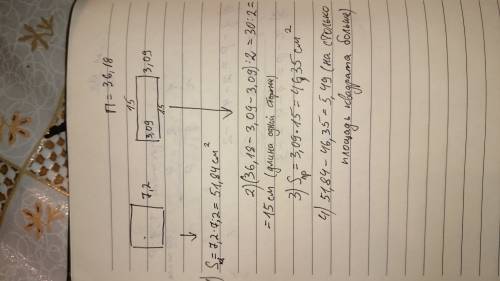 П = 36,18
7,2
15
3,09
3,09
15
1) Sкв = 7,2·7,2 = 51,84 см²
2) (36,18 - 3,09 - 3,09) : 2 = 30 : 2 =
= 15 см (длина одной стороны)
3) Sпр = 3,09 · 15 = 46,35 см²
4) 51,84 - 46,35 = 5,49 (на столько
площадь квадрата больше)